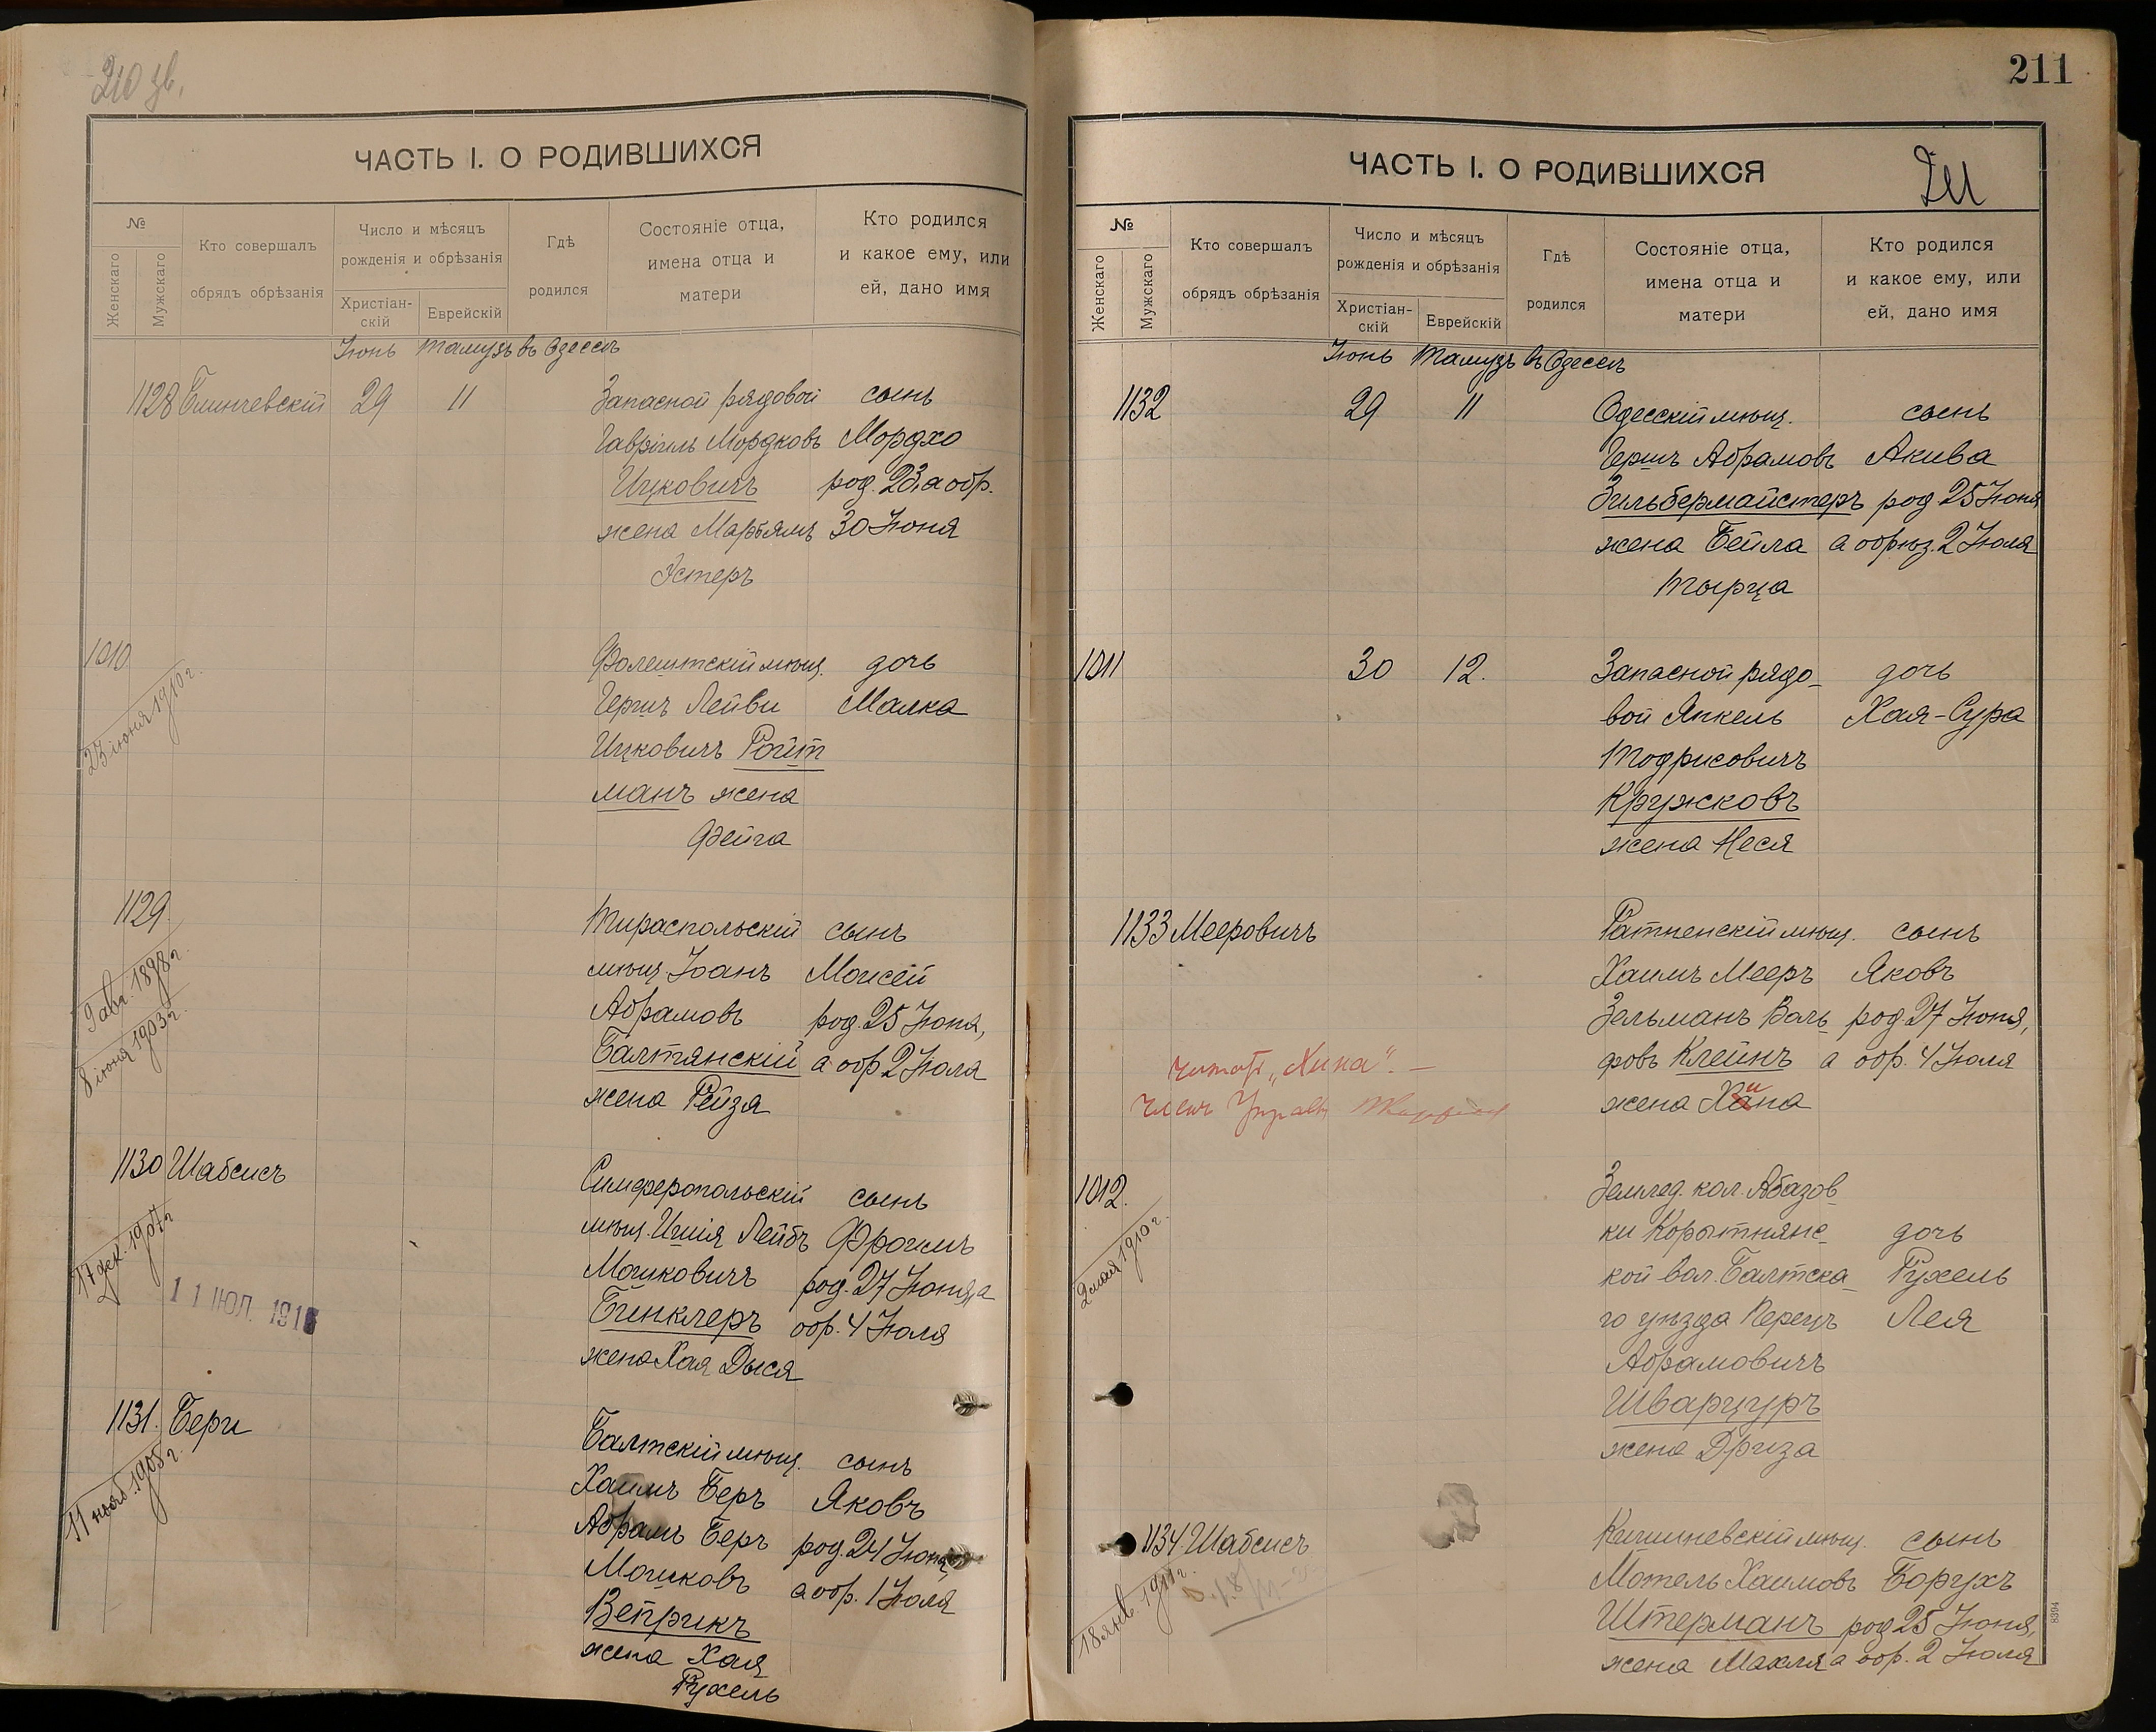 210 зв.
ЧАСТЬ I. О РОДИВШИХСЯ
№
Женскаго
Мужскаго
Кто совершалъ
обрядъ обрѣзанія
Число и мѣсяцъ
рожденія и обрѣзанія
Христіан-
скій
Еврейскій
Гдѣ
родился
Состояніе отца,
имена отца и
матери
Кто родился
и какое ему, или
ей, дано имя
Іюнь Тамузъ въ Одессѣ
1128 29 11 Запасной рядовой сынъ
Гавріилъ Мордковъ Мордхо
Ицковичъ род. 23, а обр.
жена Марьямъ 30 Іюня
Эстеръ
1010 Фалештскій мѣщ. дочь
23 іюня 1910 г.
Гершъ Лейви Малка
Ицковичъ Ройт
манъ жена
Фейга
1129. Тираспольскій сынъ
9 авг. 1898 г.
8 іюня 1903 г.
мѣщ. Іоанъ Моисей
Абрамовъ род. 25 Іюня,
Балтянскій а обр 2 Іюля
жена Рейза
1130 Шабсисъ Симферопольскій сынъ
17 дек. 1907 г
11 ИЮЛ. 191
мѣщ. Ицшія Лейбъ Фроимъ
Мошковичъ род. 27 Іюня, а
Бинклеръ обр. 4 Іюля
жена Хая Дыся
1131. Бери Балтскій мѣщ. сынъ
11 нояб. 1905 г.
Хаимъ Беръ Яковъ
Абрамъ Беръ род. 24 Іюня,
Мошковъ а обр. 1 Іюля
Веприкъ
жена Хая
Рухель
211
ЧАСТЬ I. О РОДИВШИХСЯ
№
Женскаго
Мужскаго
Кто совершалъ
обрядъ обрѣзанія
Число и мѣсяцъ
рожденія и обрѣзанія
Христіан-
скій
Еврейскій
Гдѣ
родился
Состояніе отца,
имена отца и
матери
Кто родился
и какое ему, или
ей, дано имя
Іюнь Тамузъ въ Одессѣ
1132 29 11 Одесскій мѣщ. сынъ
Гершъ Абрамовъ Акива
Зильбермайстеръ род 25 Іюня
жена Бейла а обрѣз. 2 Іюля
Тырца
1011 30 12. Запасной рядо- дочь
вой Янкель Хая-Сура
Тодрисовичъ
Кружковъ
жена Неся
1133 Мееровичъ Ратненскій мѣщ. сынъ
Хаимъ Мееръ Яковъ
Зельманъ Воль- род. 27 Іюня,
фовъ Клейнъ а обр. 4 Іюля
жена Хана
и
читать „Хина“. —
Членъ Управы
1012. Землед. кол. Абазов-
2 мая 1910 г.
ки Корытнянс- дочь
кой вол. Балтска- Рухель
го уѣзда Перецъ Лея
Абрамовичъ
Шварцуръ
жена Дриза
1134 Шабсисъ Кишиневскій мѣщ. сынъ
18 янв. 1911 г.
Мотель Хаимовъ Борухъ
Штерманъ род 25 Іюня,
жена Махля а обр. 2 Іюля
8394